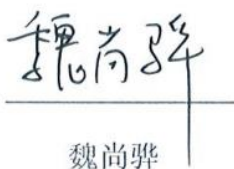 魏尚骅
魏尚骅